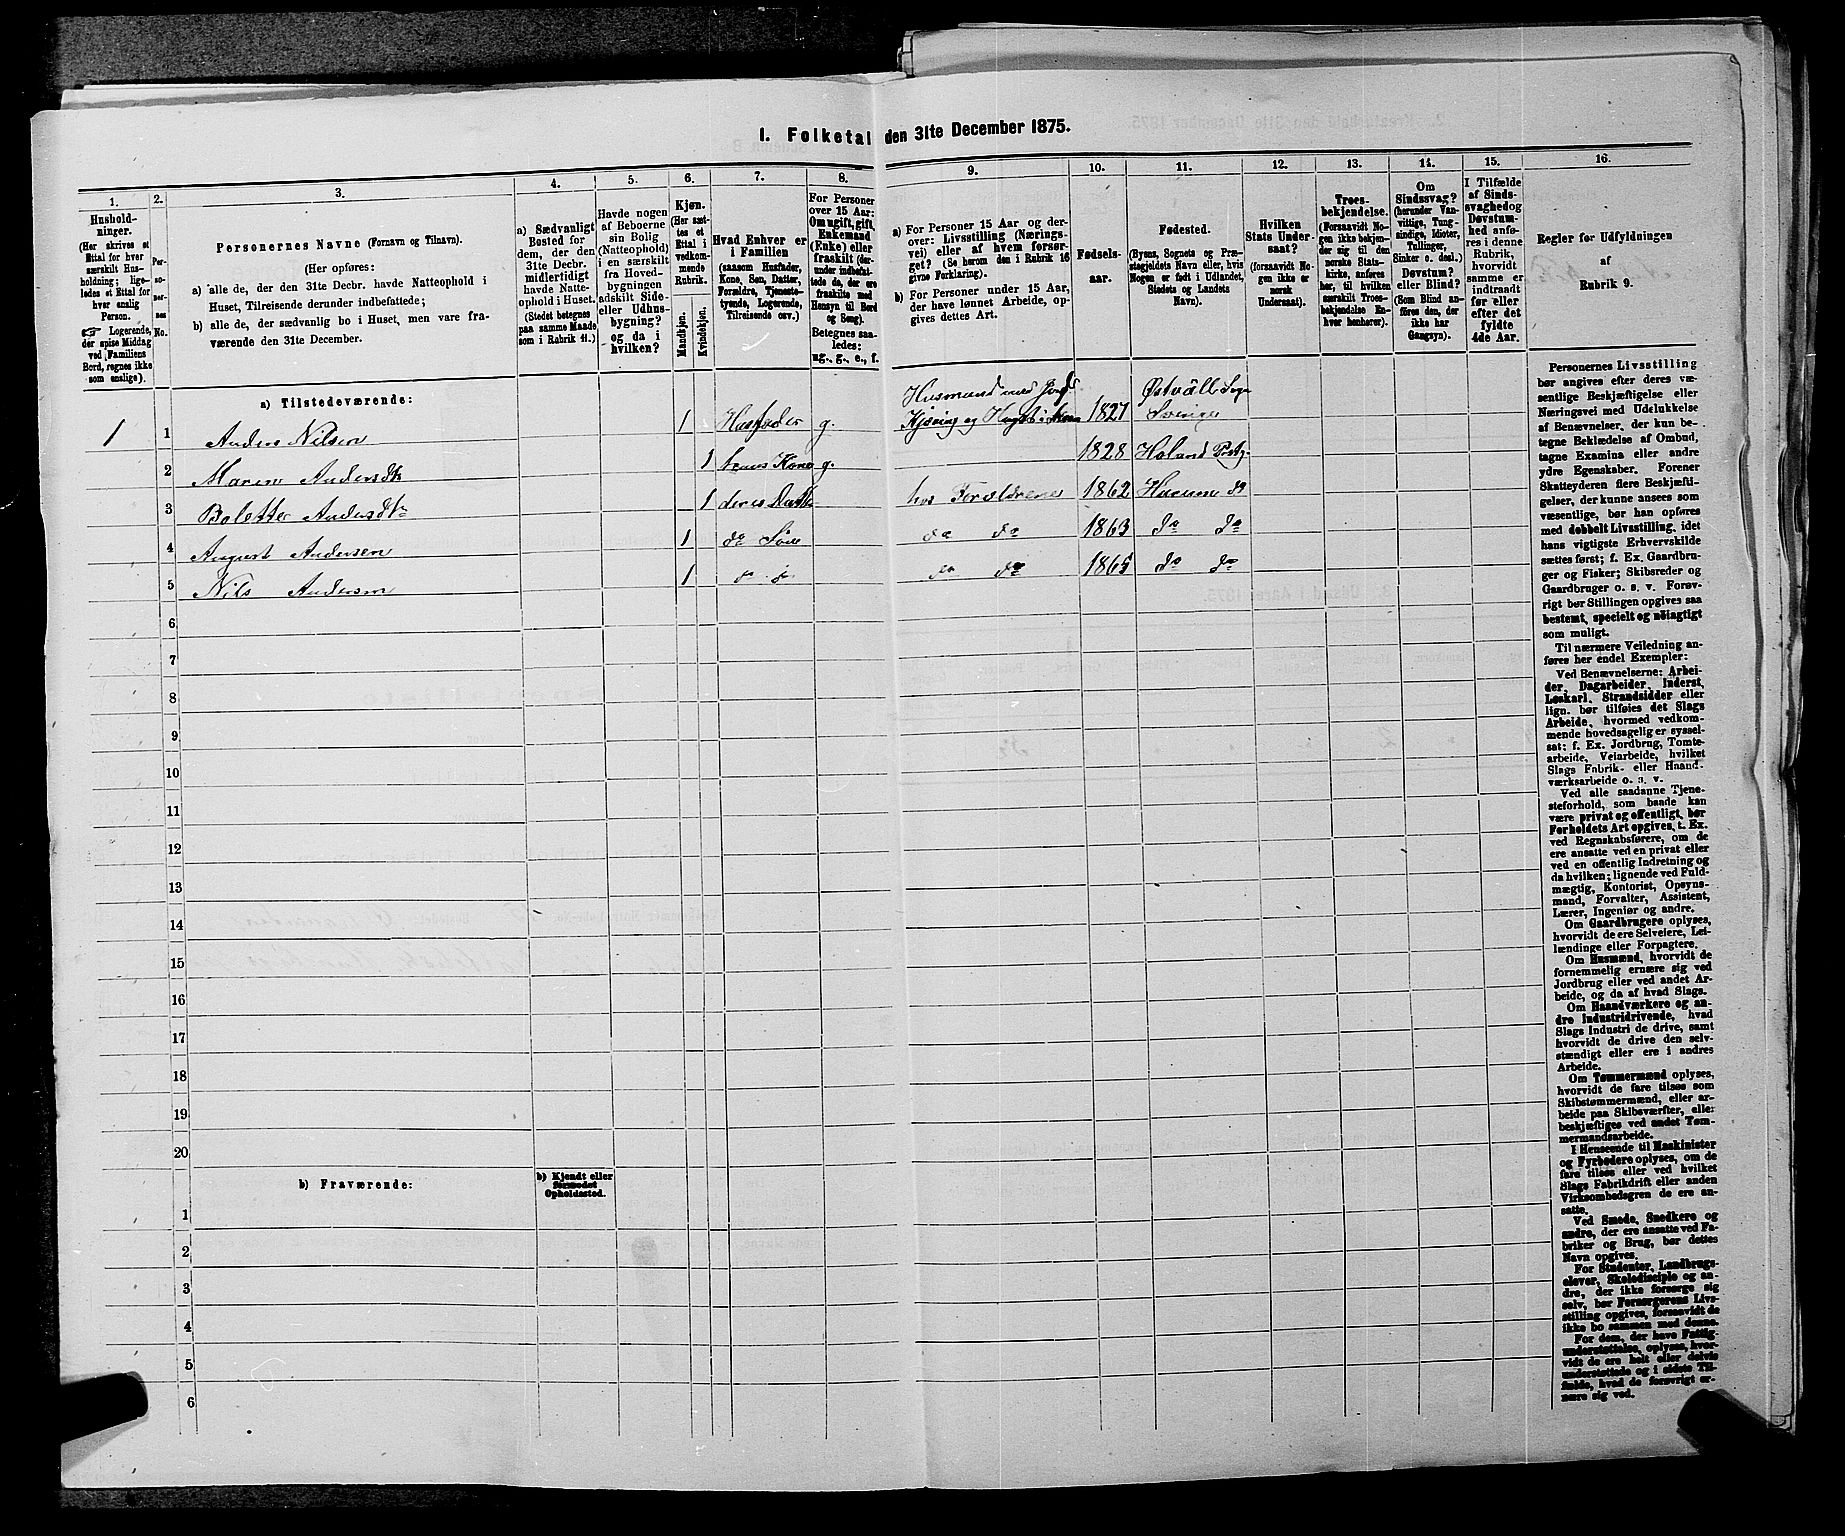 I. Folketal den 31te December 1875.
1.
2.
3.
4.
5.
6.
7.
8.
9.
10.
11.
12.
13.
14.
15.
16.
Hushold-
ninger.
(Her skrives et
Ettal for hver
særskilt Hus-
holdning; lige-
ledes et Ettal for
hver enslig
Person.
☞ Logerende,
der spise Middag
ved Familiens
Bord, regnes ikke
som enslige).
Per-
so-
ner-
nes
No.
Personernes Navne (Fornavn og Tilnavn).
(Her opføres:
a) alle de, der den 31te Decbr. havde Natteophold i
Huset, Tilreisende derunder indbefattede;
b) alle de, der sædvanlig bo i Huset, men vare fra-
værende den 31te December.
a) Sædvanligt
Bosted for
dem, der den
31te Decbr.
midlertidigt
havde Natte-
ophold i Huset.
(Stedet betegnes
paa samme Maade
som i Rubrik 11.)
Havde nogen
af Beboerne
sin Bolig
(Natteophold)
i en særskilt
fra Hoved-
bygningen
adskilt Side-
eller Udhus-
bygning?
og da i
hvilken?
Kjøn.
(Her sæt-
tes et
Ettal i
vedkom-
mende
Rubrik.
Mandkjøn.
Kvindekjøn.
Hvad Enhver er
i Familien
(saasom Husfader,
Kone, Søn, Datter,
Forældre, Tjeneste-
tyende, Logerende,
Tilreisende osv.)
For Personer
over 15 Aar:
Om ugift, gift,
Enkemand
(Enke) eller
fraskilt (der-
under indbefat-
tede de, der ere
fraskilte med
Hensyn til Bord
og Seng).
Betegnes saa-
ledes:
ug., g., e., f.
a) For Personer 15 Aar og der-
over: Livsstilling (Nærings-
vei) eller af hvem forsør-
get? (Se herom den i Rubrik 16
givne Forklaring).
b) For Personer under 15 Aar,
der have lønnet Arbeide, op-
gives dettes Art.
Fødsels-
aar.
Fødested.
(Byens, Sognets og Præ-
stegjeldets Navn eller, hvis
Nogen er født i Udlandet,
Stedets og Landets
Navn).
Hvilken
Stats Under-
saat?
(forsaavidt No-
gen ikke er
norsk
Undersaat).
Troes-
bekjendelse.
(Forsaavidt No-
gen ikke bekjen-
der sig til den
norske Stats-
kirke, anføres
her, til hvilken
særskilt Troes-
bekjendelse En-
hver henhører).
Om
Sindssvag?
(herunder Van-
vittige, Tung-
sindige, Idioter,
Tullinger,
Sinker o. desl.)
Døvstum?
eller Blind?
(Som Blind an-
føres den, der
ikke har
Gangsyn).
I Tilfælde
af Sinds-
svaghed og
Døvstum-
hed anfø-
res i denne
Rubrik,
hvorvidt
samme er
indtraadt
før eller
efter det
fyldte
4de Aar.
Regler for Udfyldningen
af
Rubrik 9.
a) Tilstedeværende:
1 1 Anders Nilsen 1 Husfader g. Husmand med Jord 1827 Østvall Sogn Sverige
2 Maren Andersdtr 1 hans Kone g. 1828 Høland Prstg.
3 Bolette Andersdtr 1 deres Datter hos Forældrene 1862 do
4 August Andersen 1 do Søn do do 1863 do do
5 Nils Andersen 1 do do do do 1865 do do
6
7
8
9
10
11
12
13
14
15
16
17
18
19
20
b) Fraværende:
b) Kjendt eller
formodet
Opholdssted.
1
2
3
4
5
6
Personernes Livsstilling
bør angives efter deres væ-
sentlige Beskjæftigelse eller
Næringsvei med Udelukkelse
af Benævnelser, der kun be-
tegne Beklædelse af Ombud,
tagne Examina eller andre
ydre Egenskaber. Forener
Skatteyderen flere Beskjæfti-
gelser, der kunne ansees som
væsentlige, bør han opføres
med dobbelt Livsstilling, idet
hans vigtigste Erhvervskilde
sættes først; f. Ex. Gaardbru-
ger og Fisker; Skibsreder og
Gaardbruger o. s. v. Forøv-
rigt bør Stillingen opgives saa
bestemt, specielt og nøiagtigt
som muligt.
Til nærmere Veiledning an-
føres her endel Exempler:
Ved Benævnelserne: Arbei-
der, Dagarbeider, Inderst,
Løskarl, Strandsidder eller
lign. bør tilføies det Slags
Arbeide, hvormed vedkom-
mende hovedsagelig er syssel-
sat; f. Ex. Jordbrug, Tomte-
arbeide, Veiarbeide, hvilket
Slags Fabrik- eller Haand-
værksarbeide o. s. v.
Ved alle saadanne Tjene-
steforhold, som baade kan
være privat og offentligt, bør
Forholdets Art opgives, t. Ex.
ved Regnskabsførere, om de
ere ansatte ved en privat eller
ved en offentlig Indretning og
da hvilken; lignende ved Fuld-
mægtig, Kontorist, Opsyns-
mand, Forvalter, Assistent,
Lærer, Ingeniør og andre.
Om Gaardbrugere oplyses,
hvorvidt de ere Selveiere, Lei-
lændinge eller Forpagtere.
Om Husmænd, hvorvidt de
fornemmelig ernære sig ved
Jordbrug eller ved andet Ar-
beide, og da af hvad Slags.
Om Haandværkere og an-
dre Industridrivende, hvad
Slags Industri de drive, samt
hvorvidt de drive den selv-
stændigt eller ere i andres
Arbeide.
Om Tømmermænd oplyses,
hvorvidt de fare tilsøs som
Skibstømmermænd, eller ar-
beide paa Skibsværfter, eller
beskjæftiges ved andet Tøm-
mermandsarbeide.
I Henseende til Maskinister
og Fyrbødere oplyses, om de
fare tilsøs eller ved hvilket
Slags Fabrikdrift eller anden
Virksomhedsgren de ere an-
satte.
Ved Smede, Snedkere og
andre, der ere ansatte ved Fa-
briker og Brug, bør dettes
Navn opgives.
For Studenter, Landbrugs-
elever, Skoledisciple og an-
dre, der ikke forsørge sig
selv, bør Forsørgerens Livs-
stilling opgives, forsaavidt de
ikke bo sammen med denne.
For dem, der have Fattig-
understøttelse, oplyses, hvor-
vidt de ere helt eller delvis
understøttede og i sidste Til-
fælde, hvad de forøvrigt er-
nære sig ved.